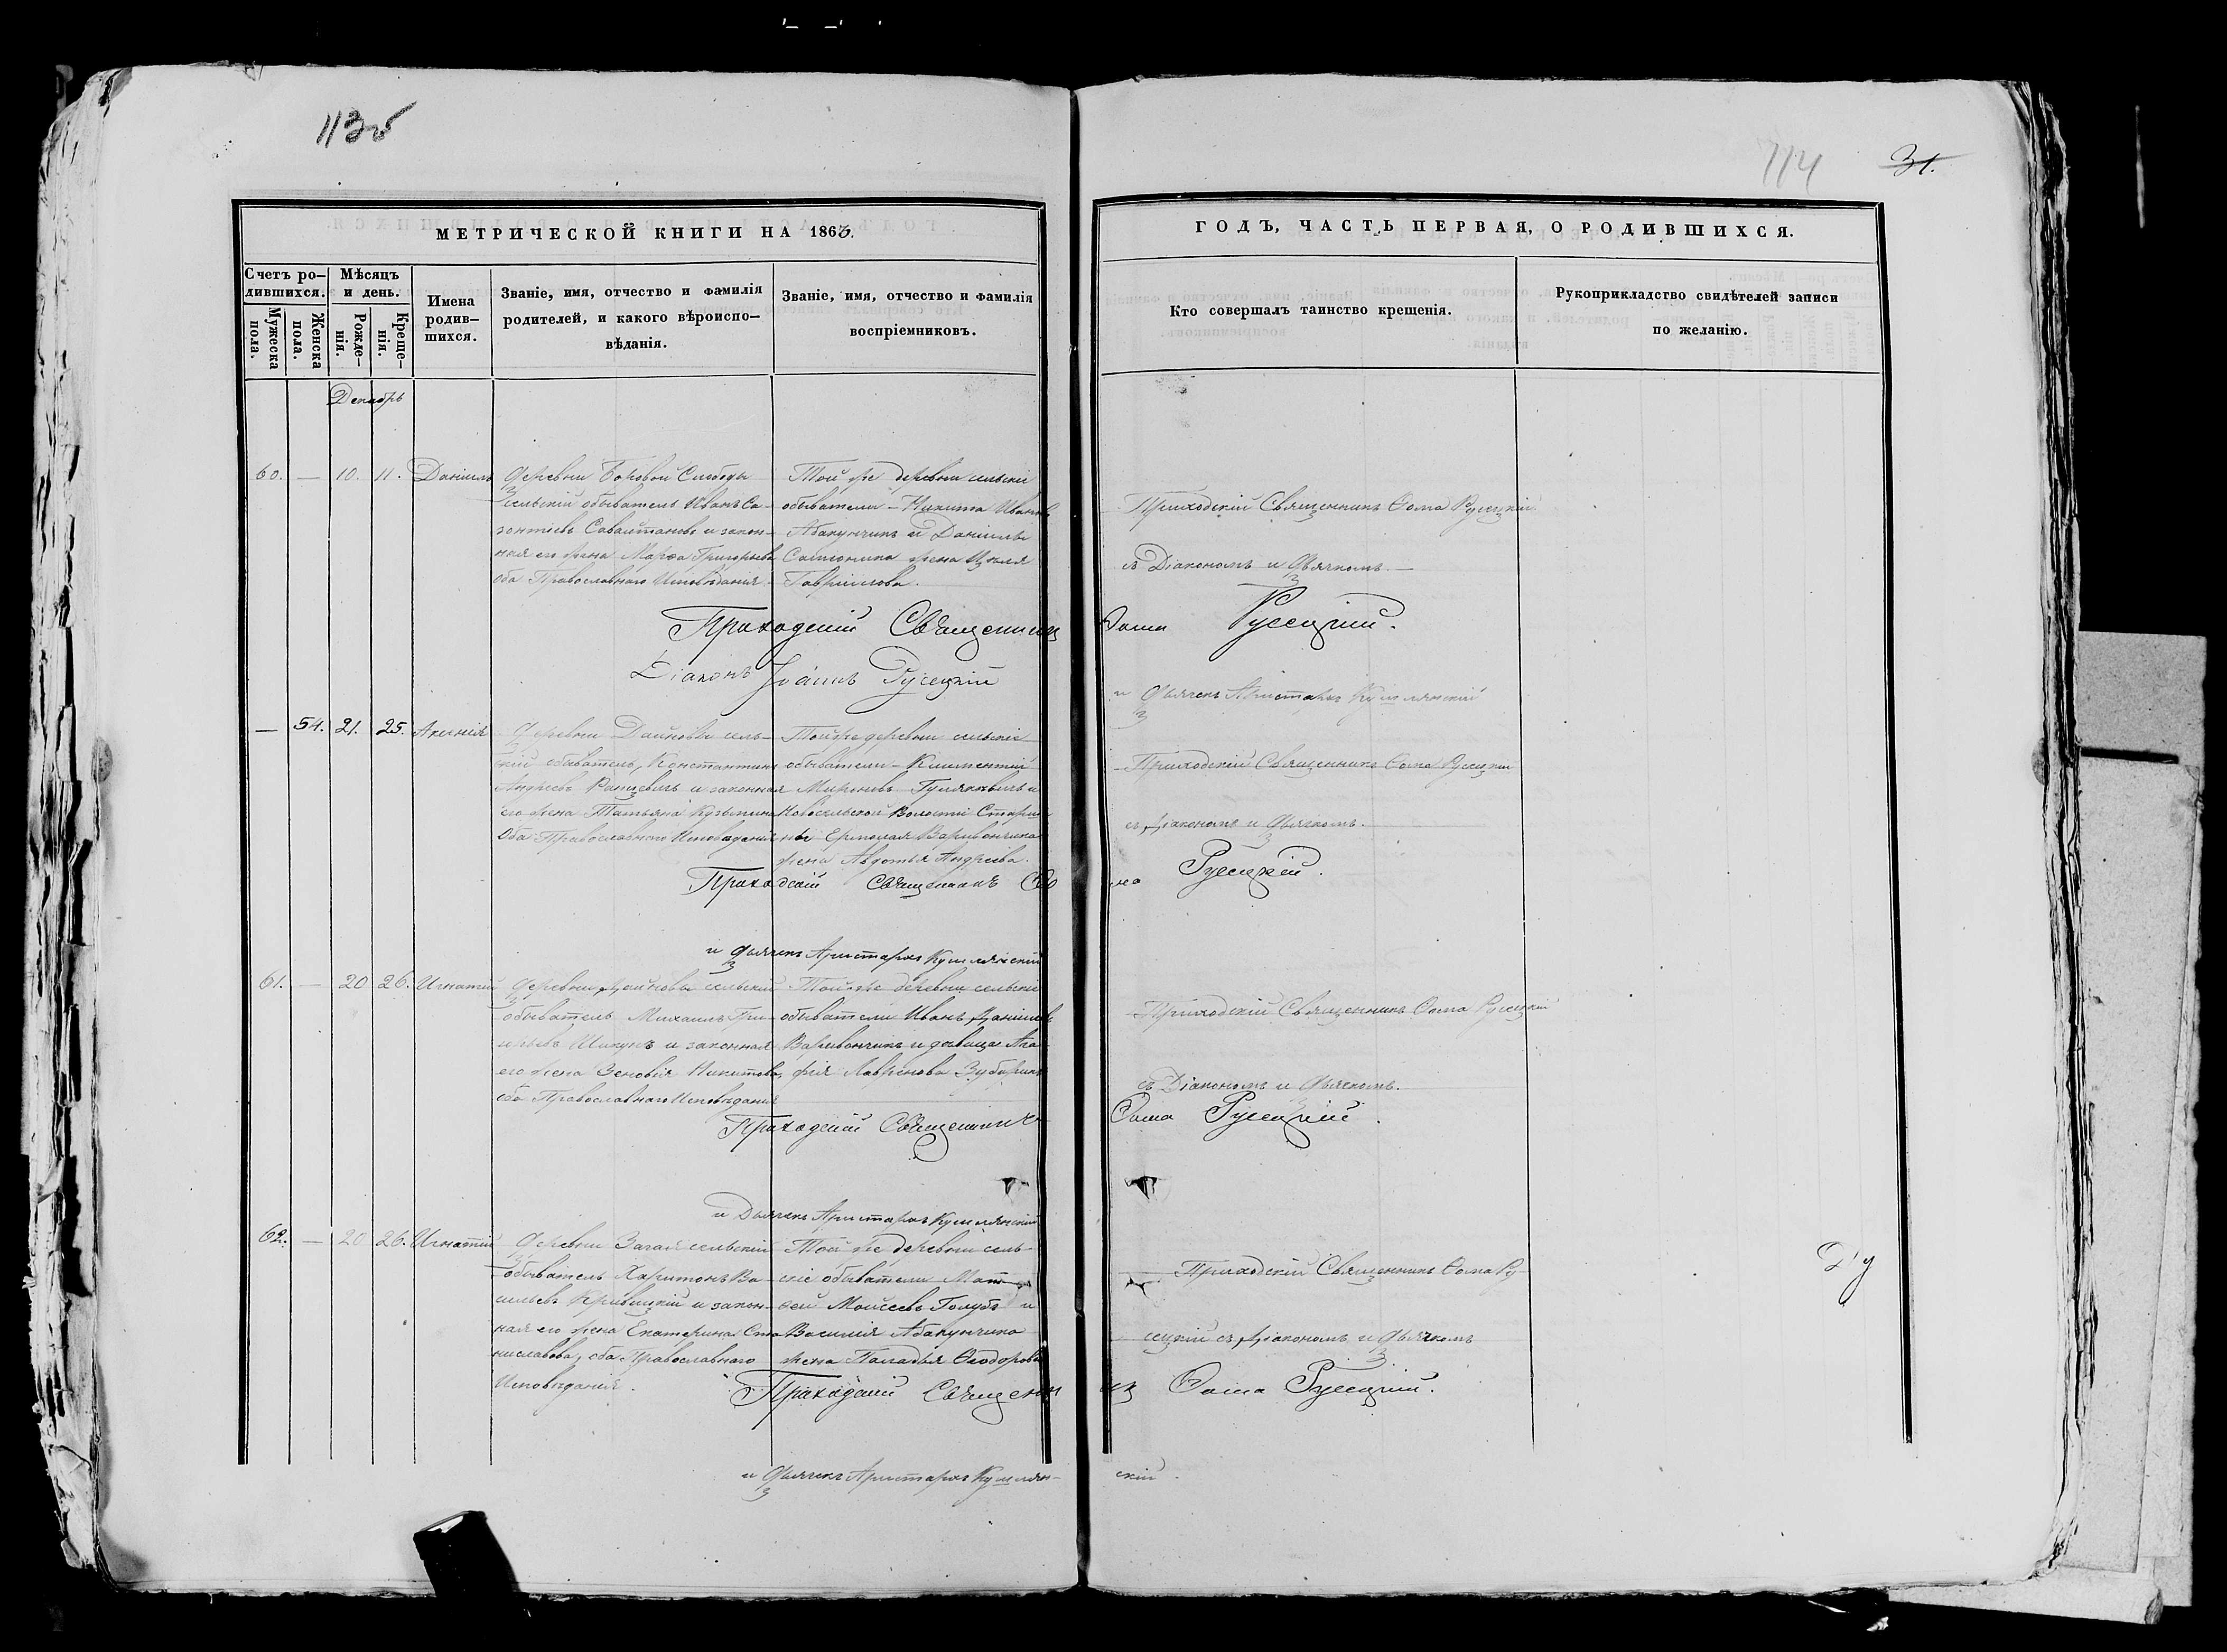 113об
114
31.
МЕТРИЧЕСКОЙ КНИГИ НА 1863.
ГОДЪ, ЧАСТЬ ПЕРВАЯ, О РОДИВШИХСЯ.
Счетъ ро-
дившихся.
Мужеска
пола.
Женска
пола.
Мѣсяцъ
и день.
Рожде-
нія.
Креще-
нія.
Имена
родив-
шихся.
Званіе, имя, отчество и фамилія
родителей, и какого вѣроиспо-
вѣданія.
Званіе, имя, отчество и фамилія
воспріемниковъ.
Кто совершалъ таинство крещенія.
Рукоприкладство свидѣтелей записи
по желанію.
Декабрь
60. — 10. 11. Даніилъ
Деревни Боровой Слободы
сельскій обыватель Иванъ Са-
зонтіевъ и закон-
ная его жена Марѳа Григорьева
оба Православнаго Исповѣданія.
Той же деревни сельскіе
обыватели — Никита Ивановъ
Абакунчикъ и Даніила
жена
Гавріилова.
Приходскій Священникъ Ѳома Русецкій
съ Діакономъ и Дьячкомъ. —
Приходскій Священникъ Ѳома Русецкій.
Діаконъ Іоаннъ Русецкій
и Дьячекъ Аристархъ
— 54. 21. 25. Аксенія
Деревни Дайновы сель-
скій обыватель, Константинъ
Андреевъ и законная
его жена Татьяна Кузьмина
Оба Православнаго Исповѣданія
Той же деревни сельскіе
обыватели — Климентій
Мироновъ и
Волости Старши-
ны Ермолая Варивончика
жена Авдотья Андреева.
Приходскій Священникъ Ѳома Русецкій
съ Діакономъ и Дьячкомъ.
Приходскій Священникъ Ѳома Русецкій.
и Дьячекъ Аристархъ
61. — 20 26. Игнатій
Деревни Дайновы сельскій
обыватель Михаилъ Гри-
горьевъ Шикунъ и законная
его жена Зеновія Никитова,
оба Православнаго Исповѣданія
Той же деревни сельскіе
обыватели Иванъ Даніиловъ
Варивончикъ и дѣвица Ага-
фія Лавренова
Приходскій Священникъ Ѳома Русецкій
съ Діакономъ и Дьячкомъ.
Приходскій Священникъ Ѳома Русецкій.
и Дьячекъ Аристархъ
62. — 20 26. Игнатій
Деревни сельскій
обыватель Харитонъ Ва-
сильевъ Кривицкій и закон-
ная его жена Екатерина Ста-
ниславова, оба Православнаго
Исповѣданія.
Той же деревни сель-
скіе обыватели Мат-
ѳей Моисеевъ Голубъ и
Василія Абакунчика
жена Паладья Ѳеодорова
Приходскій Священникъ Ѳома Ру-
сецкій съ Діакономъ и Дьячкомъ
Приходскій Священникъ Ѳома Русецкій.
и Дьячекъ Аристархъ
скій.